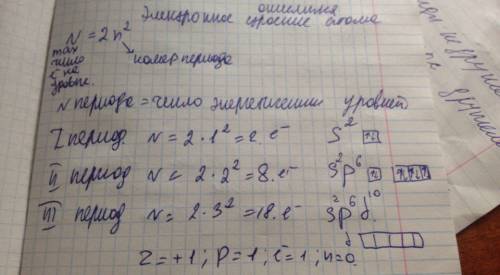 Электронное строение атома
N = 2n²
max число ē на уровне.
номер периода
N периода = число энергетических уровней
I период N = 2·1² = 2. ē S²
II период N = 2·2² = 8. ē S²p⁶
III период N = 2·3² = 18. ē S²p⁶d¹⁰
d
Z = +1; P = 1; ē = 1; n = 0.